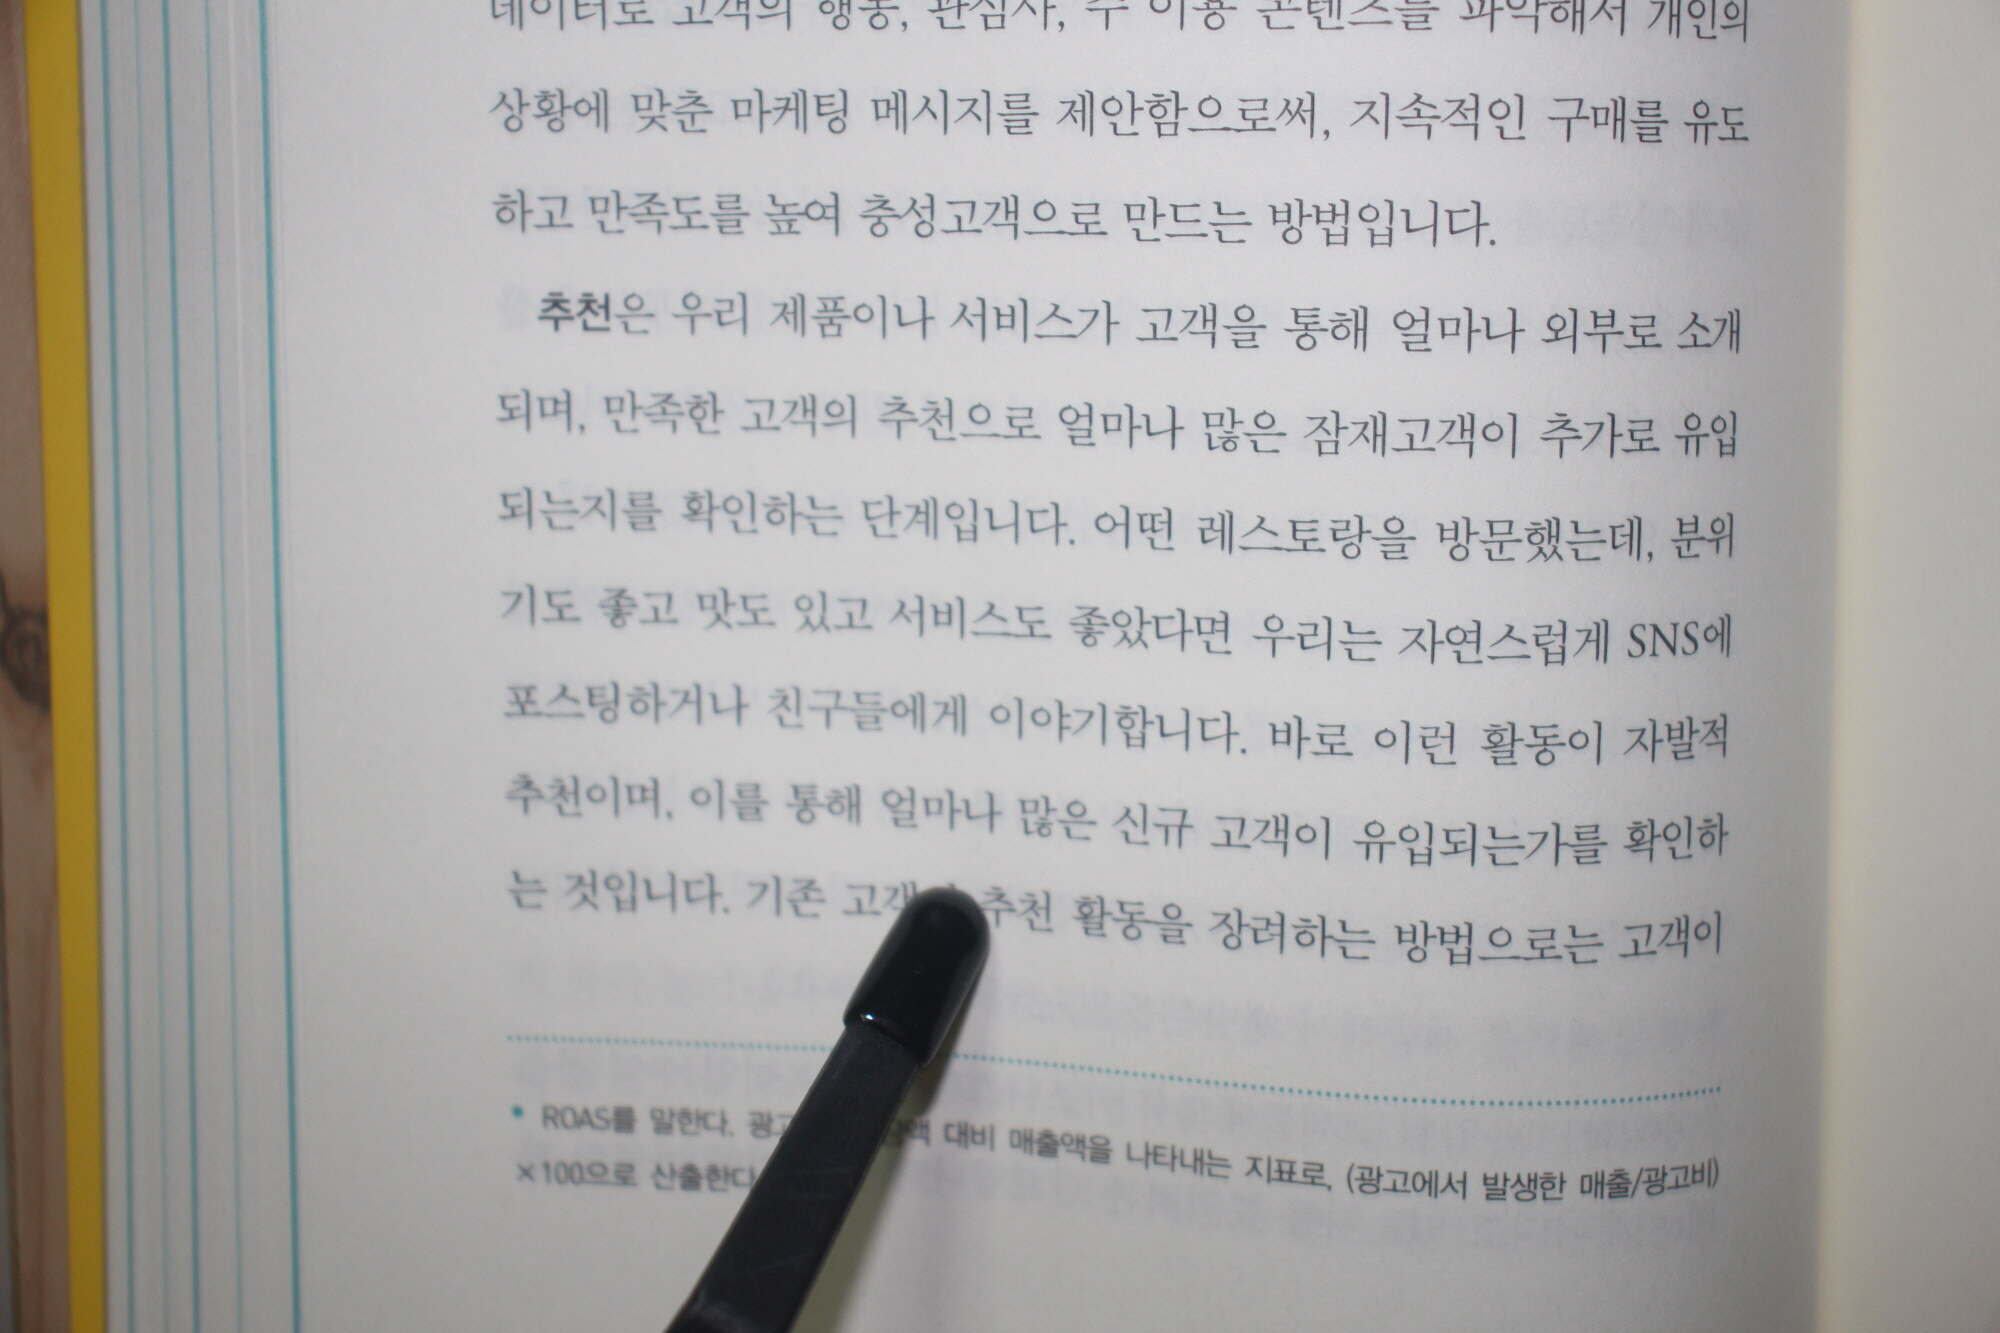 데이터로 고객의 행동, 관심사, 주 이용 콘텐츠를 파악해서 개인의
상황에 맞춘 마케팅 메시지를 제안함으로써, 지속적인 구매를 유도
하고 만족도를 높여 충성고객으로 만드는 방법입니다.
추천은 우리 제품이나 서비스가 고객을 통해 얼마나 외부로 소개
되며, 만족한 고객의 추천으로 얼마나 많은 잠재고객이 추가로 유입
되는지를 확인하는 단계입니다. 어떤 레스토랑을 방문했는데, 분위
기도 좋고 맛도 있고 서비스도 좋았다면 우리는 자연스럽게 SNS에
포스팅하거나 친구들에게 이야기합니다. 바로 이런 활동이 자발적
추천이며, 이를 통해 얼마나 많은 신규 고객이 유입되는가를 확인하
는 것입니다. 기존 추천 활동을 장려하는 방법으로는 고객이
• ROAS를 말한다. 대비 매출액을 나타내는 지표로, (광고에서 발생한 매출/광고비)
×100으로 산출한다